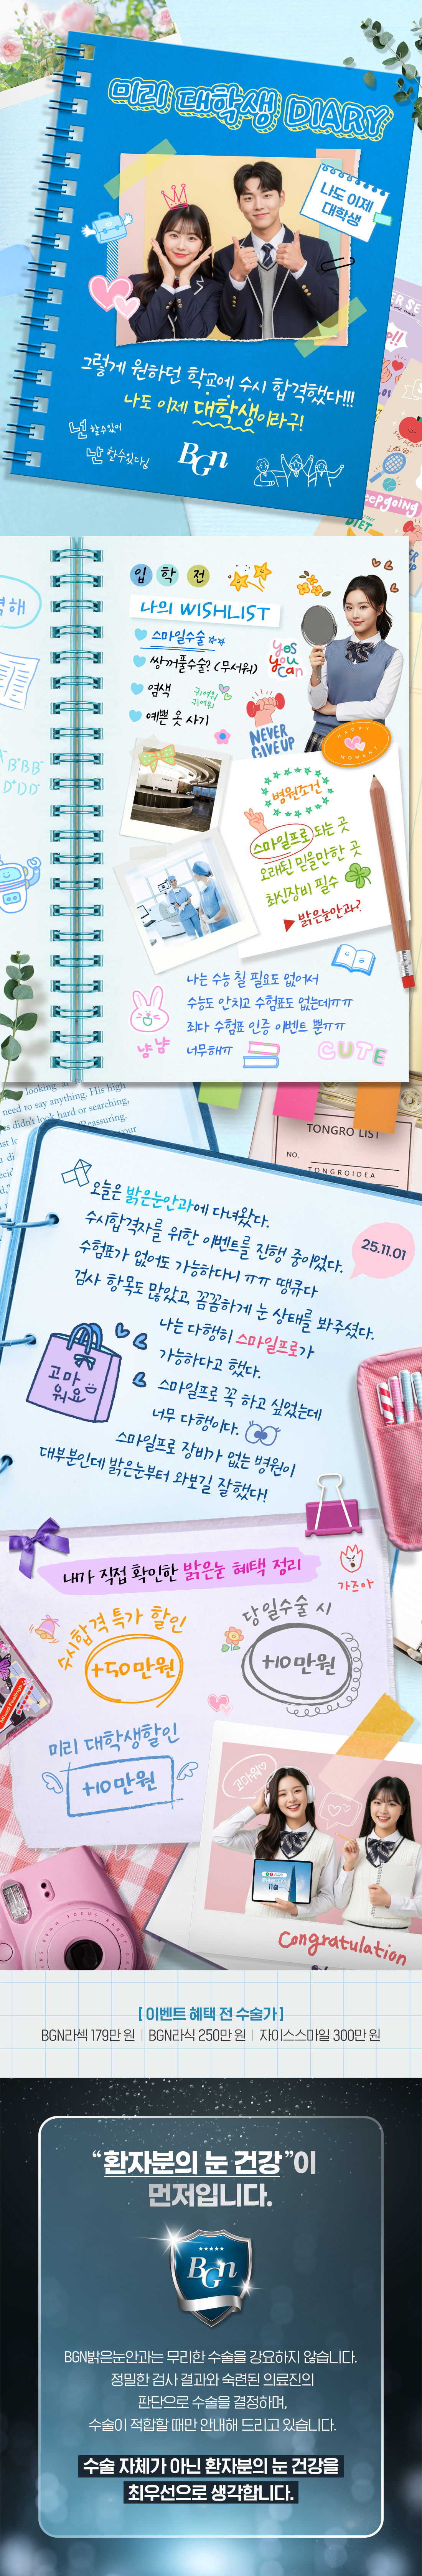 미리 대학생 DIARY
나도 이제
대학생
그렇게 원하던 학교에 수시 합격했다!!!
나도 이제 대학생이라구!
넌 할 수 있어
난 할 수 있다!
BGn
입 학 전
나의 WISHLIST
스마일수술
쌍꺼풀수술? (무서워)
염색
귀여워
귀여워
예쁜 옷 사기
yes
you
can
NEVER
GIVE UP
HAPPY
MOMENT
병원조건
스마일프로 되는 곳
오래된 믿을만한 곳
최신장비 필수
밝은눈안과?
나는 수능 칠 필요도 없어서
수능도 안치고 수험표도 없는데ㅠㅠ
죄다 수험표 인증 이벤트 뿐ㅠㅠ
너무해ㅠ
냥냥
CUTE
need to say anything. His high
TONGRO LIST
NO.
TONGROIDEA
25.11.01
오늘은 밝은눈안과에 다녀왔다.
수시합격자를 위한 이벤트를 진행 중이었다.
수험표가 없어도 가능하다니 ㅠㅠ 땡큐다
검사 항목도 많았고, 꼼꼼하게 눈 상태를 봐주셨다.
나는 다행히 스마일프로가
가능하다고 했다.
고마
워요
스마일프로 꼭 하고 싶었는데
너무 다행이다.
스마일프로 장비가 없는 병원이
대부분인데 밝은눈부터 와보길 잘했다!
내가 직접 확인한 밝은눈 혜택 정리
가즈아
수시합격 특가 할인
+50만원
당일수술 시
+10만원
미리 대학생할인
+10만원
고마워
Congratulation
[ 이벤트 혜택 전 수술가 ]
BGN라섹 179만 원 | BGN라식 250만 원 | 자이스스마일 300만 원
“환자분의 눈 건강”이
먼저입니다.
BGn
BGN밝은눈안과는 무리한 수술을 강요하지 않습니다.
정밀한 검사 결과와 숙련된 의료진의
판단으로 수술을 결정하며,
수술이 적합할 때만 안내해 드리고 있습니다.
수술 자체가 아닌 환자분의 눈 건강을
최우선으로 생각합니다.